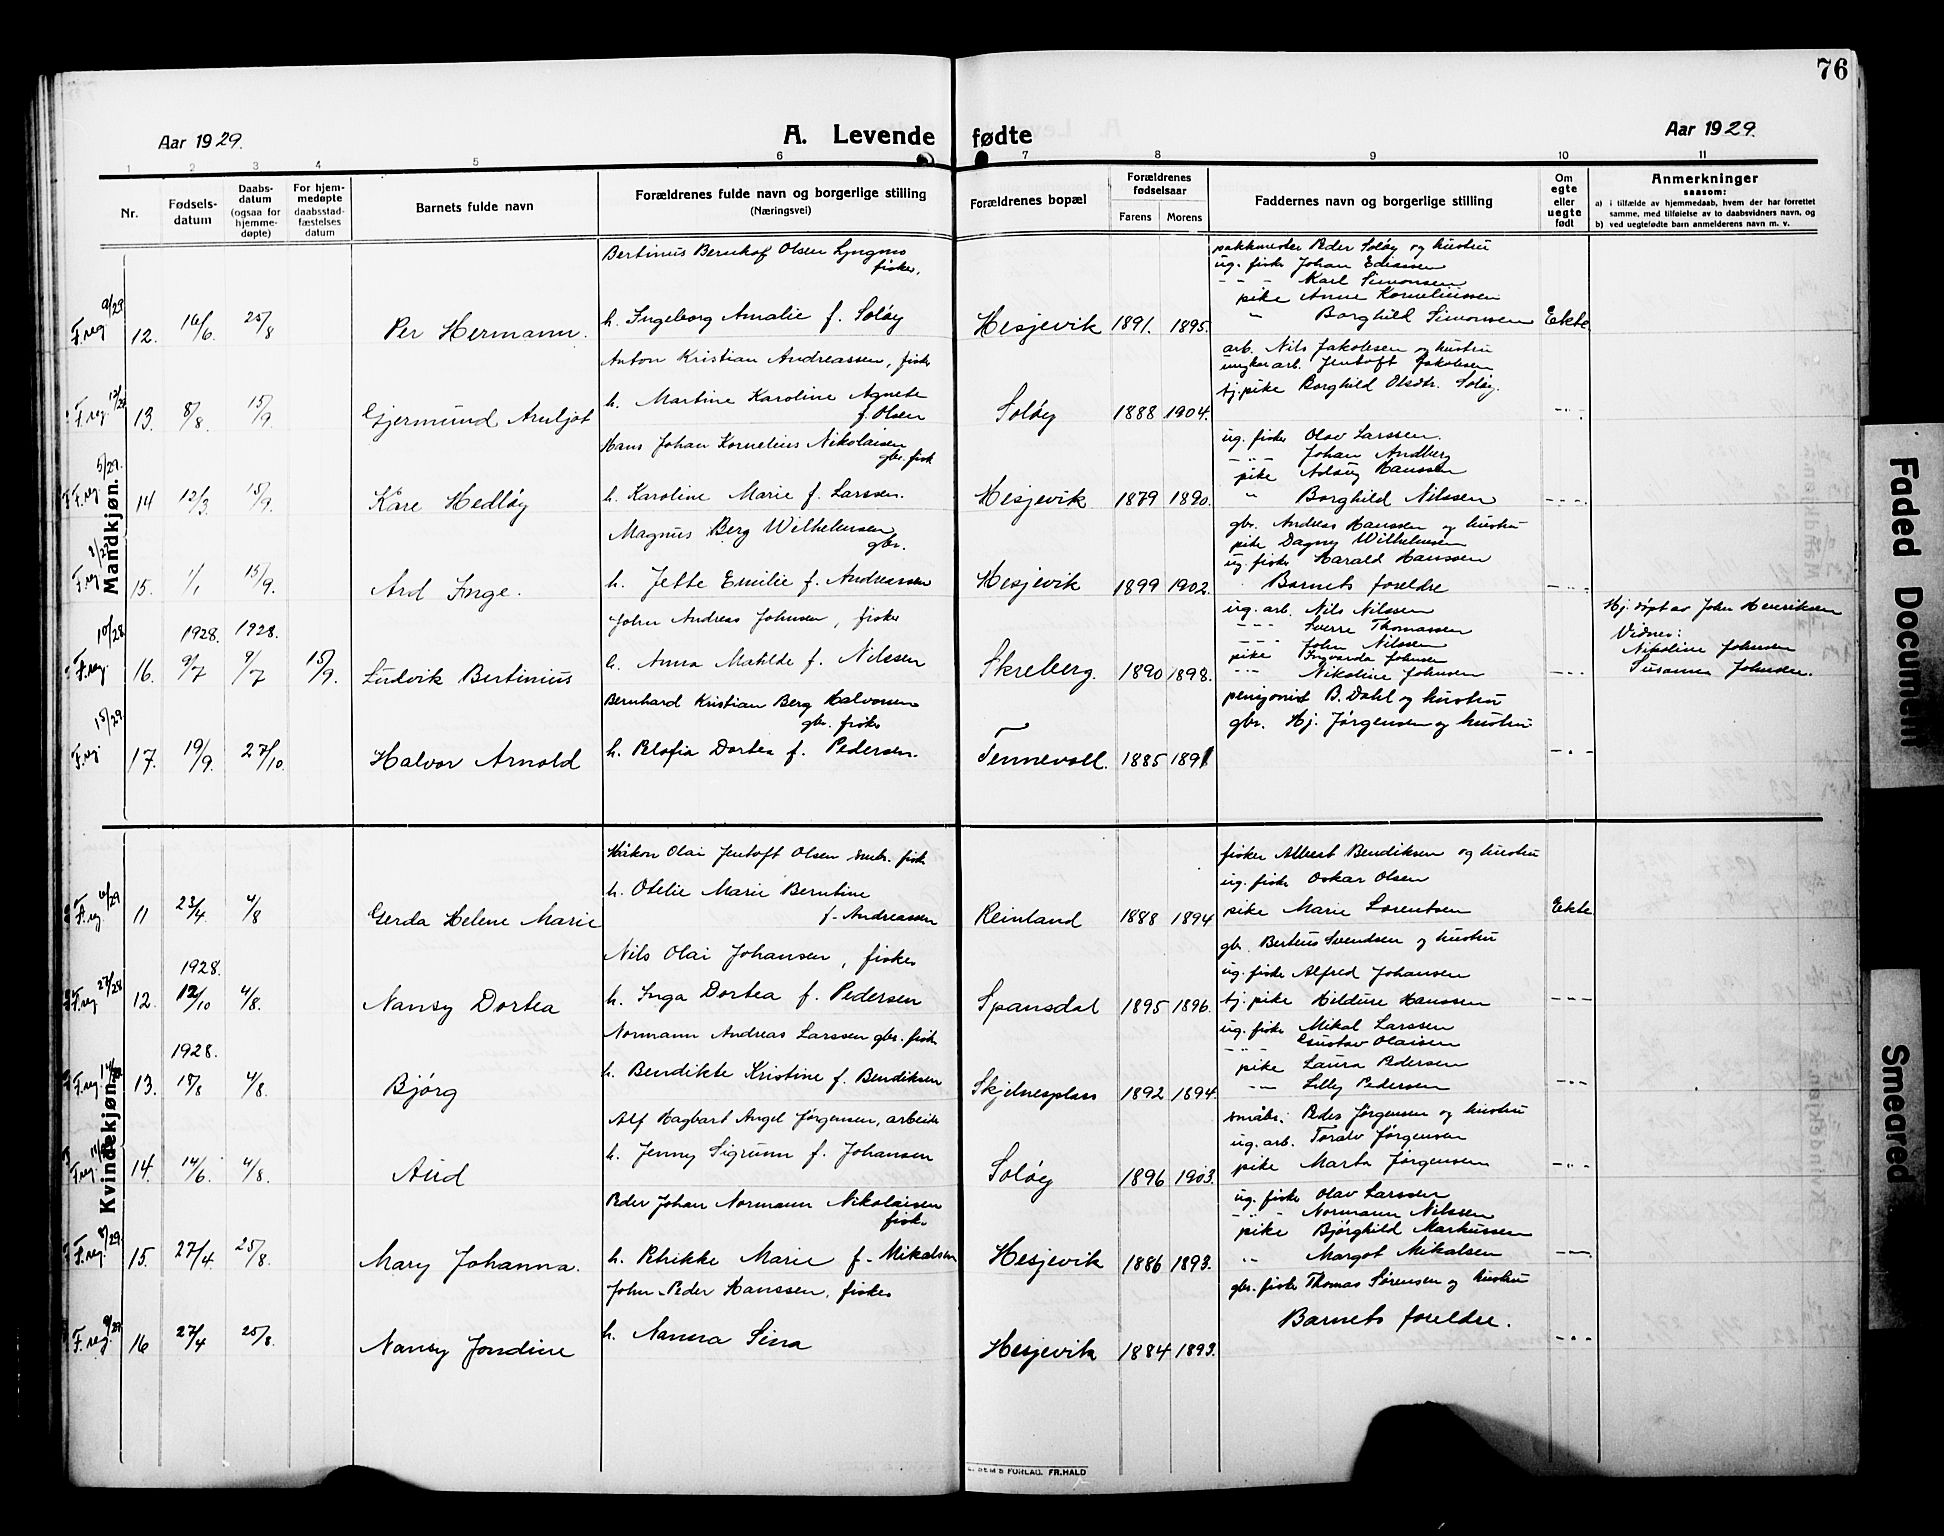 76
Aar 1929.
A. Levende fødte
Aar 1929.
1 2 3 4 5 6 7 8 9 10 11
Nr.
Fødsels-
datum
Daabs-
datum
(ogsaa for
hjemme-
døpte)
For hjem-
medøpte
daabsstad-
fæstelses
datum
Barnets fulde navn
Forældrenes fulde navn og borgerlige stilling
(Næringsvei)
Forældrenes bopæl
Forældrenes
fødselsaar
Farens Morens
Faddernes navn og borgerlige stilling
Om
egte
eller
uegte
født
Anmerkninger
saasom:
a) i tilfælde av hjemmedaab, hvem der har forrettet
samme, med tilføielse av to daabsvidners navn, og
b) ved uegtefødte barn anmelderens navn m. v.
Mandkjøn.
F.reg. 9/29
12. 16/6 25/8 Per Hermann.
Bertinus Bernhof Olsen Lyngmo
fisker,
h. Ingeborg Amalie f. Soløy
Hesjevik 1891. 1895.
pakkmester Peder Soløy og hustru
ug. fisker Johan Ediassen
- - - Karl Simonsen
pike Anne Korneliussen
" Borghild Simonsen
Ekte
F.reg. 12/29
13. 8/8. 15/9 Gjermund Arnljot
Anton Kristian Andreassen, fisker
h. Martine Karoline Agnete
f. Olsen
Soløy 1888 1904.
arb. Nils Jakobsen og hustru
ungkar arb. Jentoft Jakobsen
tj. pike Borghild Olsdtr. Soløy.
-"-
F.reg. 5/29.
14 12/3. 15/9. Kåre Hedløy
Hans Johan Kornelius Nikolaisen
gbr. fisk
h. Karoline Marie f. Larssen.
Hesjevik 1879 1890.
ug. fisker Olav Larssen.
- " - Johan Andberg
pike Aslaug Hanssen
" Borghild Nilssen
- - -
F.reg.
15. 1/1 15/9. Ard Inge.
Magnus Berg Wilhelmsen
gbr.
h. Jette Emilie f. Andreassen
Hesjevik 1899 1902.
gbr. Andreas Hanssen og hustru
pike Dagny Wilhelmsen
ug. fisker Harald Hanssen
Barnets foreldre
-"-
F.reg. 10/28.
16. 1928. 9/7 1928. 9/7 15/9. Ludvik Bertinius
John Andreas Johnsen, fisker
h. Anna Matilde f. Nilssen
Skreberg. 1890 1898.
ug. arb. Nils Nilssen
- - - Sverre Thomassen
- - - John Nilssen
pike Ingvarda Johnsen
- - Nikoline Johnsen
-"-
Hj. døpt av John Henriksen
Vidner:
Nikoline Johnsen
Susanne Johnsen.
F.reg. 15/29.
17. 19/9. 27/10. Halvor Arnold
Bernhard Kristian Berg Halvorsen
gbr. fisker
h. Olofia Dortea f. Pedersen.
Tennevoll. 1885 1891
pensjonist B. Dahl og hustru
gbr. Hj. Jørgensen og hustru
-"-
Kvindekjøn.
F.reg. 10/29
11 23/4. 4/8 Gerda Helene Marie
Håkon Olai Jentoft Olsen småbr. fisk
h. Otelie Marie Berntine
f. Andreassen
Reinland 1888 1894
fisker Albert Bendiksen og hustru
ug. fisker Oskar Olsen
pike Marie Lorentsen
Ekte
F.reg. 27/28.
12. 1928. 12/10 4/8. Nansy Dortea
Nils Olai Johansen, fisker
h. Inga Dortea f. Pedersen
Spansdal 1895 1896.
gb. Berteus Svendsen og hustru
ug. fisker Alfred Johansen
tj. pike Hildure Hanssen
- - -
F.reg.
13. 1928. 18/8 4/8. Bjørg
Normann Andreas Larssen gbr. fisk
h. Bendikte Kristine f. Bendiksen
Skjelnesplass 1892 1894.
ug. fisker Mikal Larssen
- " - Gustav Olaisen
pike Laura Pedersen
-"- Lilly Pedersen
-"-
F.reg.
14. 14/6 4/8. Aud
Alf Hagbart Angel Jørgensen, arbeider
h. Jenny Sigrunn f. Johansen
Soløy 1896 1903.
småbr. Peder Jørgensen og hustru
ug. arb. Toralv Jørgensen
pike Marta Jørgensen
-"-
F.reg. 8/29.
15. 27/4. 25/8. Mary Johanna.
Peder Johan Normann Nikolaisen
fisker
h. Rikke Marie f. Mikalsen
Hesjevik 1886 1893.
ug. fisker Olav Larssen
- " - Normann Nilssen
pike Bjørghild Markussen
" Margot Mikalsen
-"-
F.reg. 9/29
16 27/4 25/8. Nansy Jondine
John Peder Hanssen, fisker
h. Nanna Sina
Hesjevik 1884 1893.
gbr. fisker Thomas Sørensen og hustru
Barnets foreldre.
-"-
SEM'S FORLAG. FR. HALD
Faded Document
Smeared